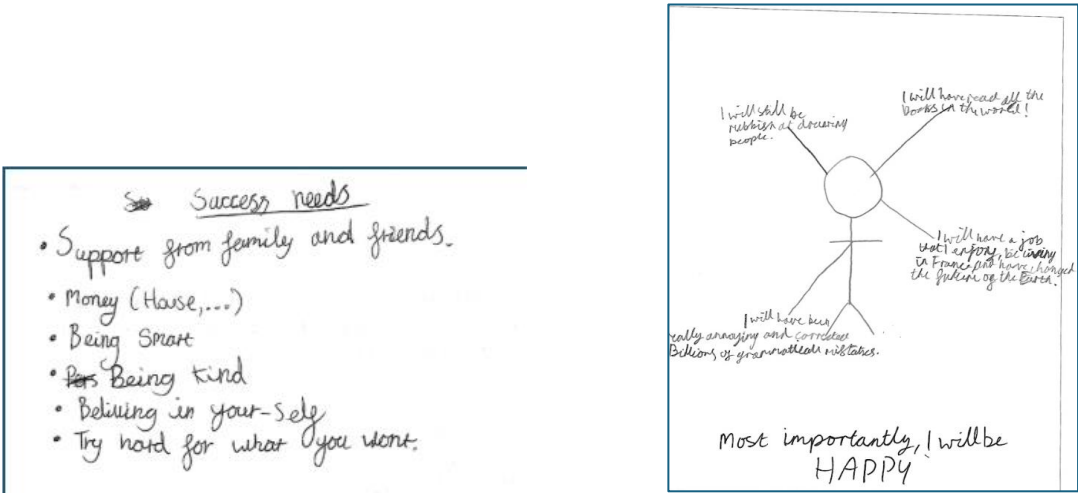 Success needs
• Support from family and friends.
• Money (House,...)
• Being Smart
• Being kind
• Beliving in your-self
• Try hard for what you want.
I will still be
rubbish at drawing
people.
I will have read all the
books in the world!
I will have a job
that I enjoy, be living
in France and have changed
the future of the Earth.
I will have been
really annoying and corrected
Billions of grammatical mistakes.
Most importantly, I will be
HAPPY